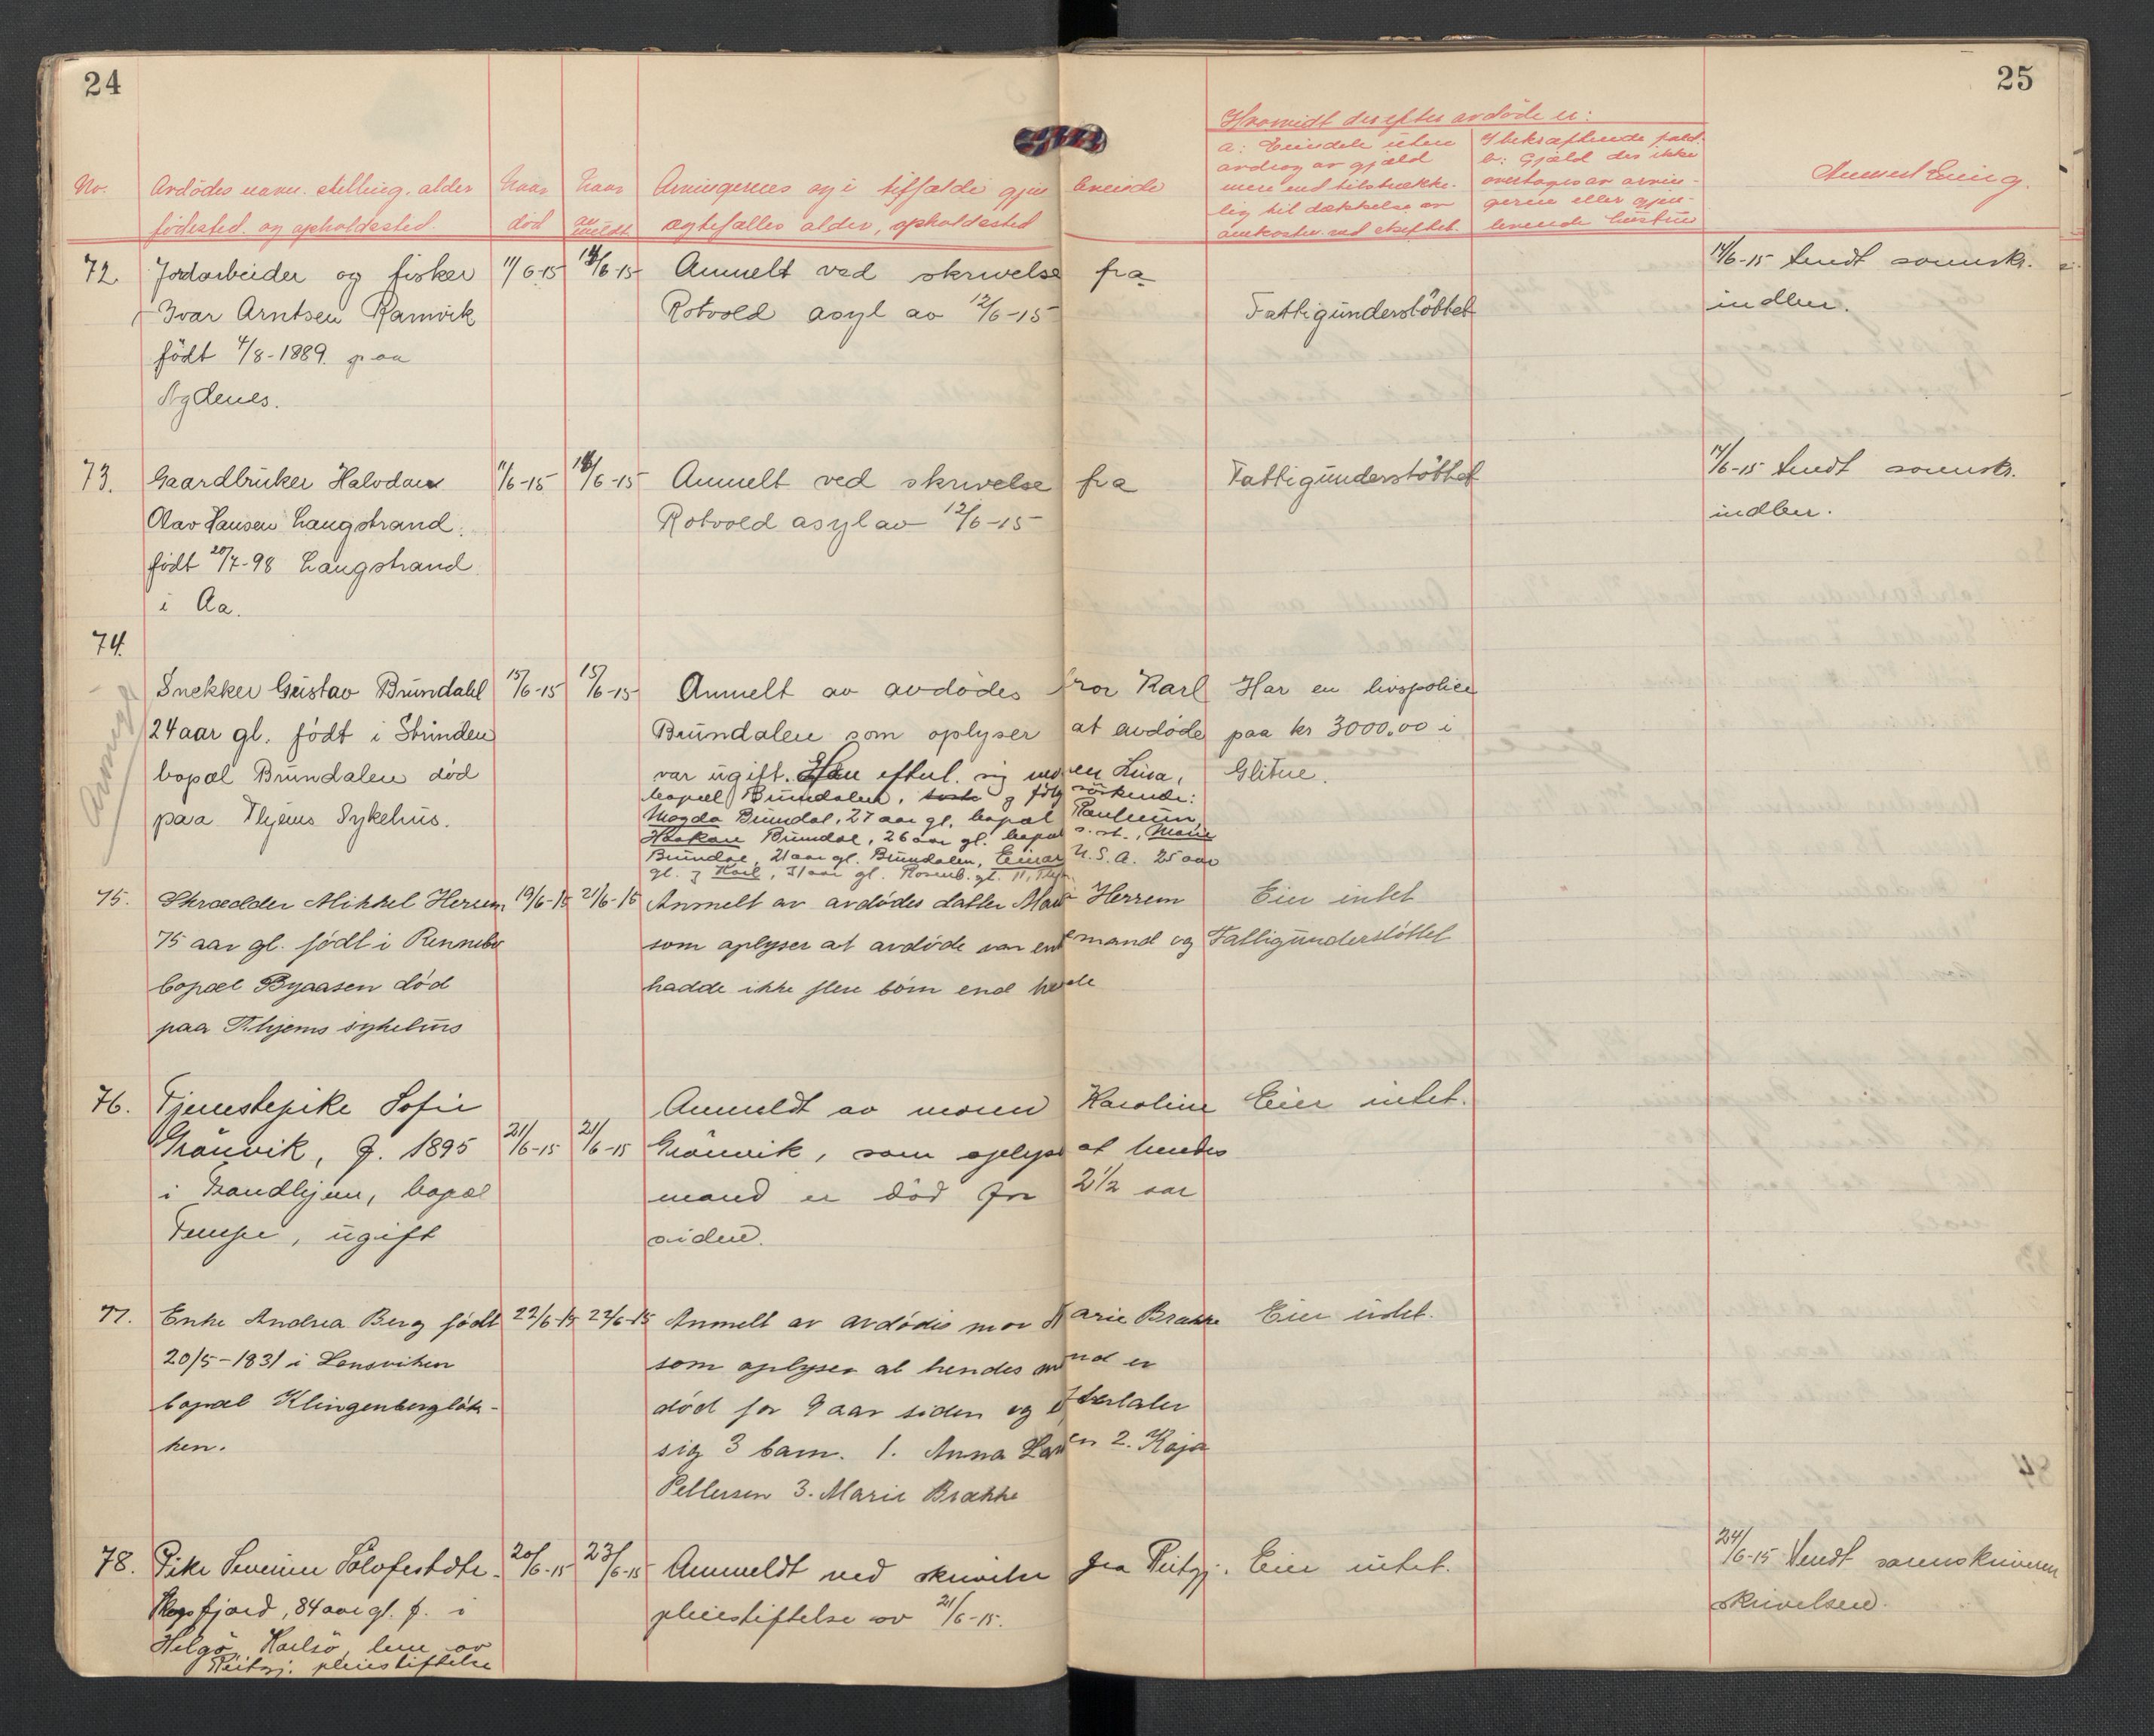 24
25
No.
Avdödes navn. stilling. alder
födested. og opholdssted.
Naar
död
Naar
an
meldt
Arvingernes og i tilfælde gjen levende
ægtefælles alder, opholdssted
Hvorvidt der efter avdöde er:
a: Eiendele uten
avdrag av gjæld
mere end tilstrække-
lig til dækkelse av
omkostn. ved skiftet.
I bekræftende fald:
b: Gjæld der ikke
overtages av arvin-
gerne eller gjen-
levende hustru
Anmerkning.
72. Jordarbeider og fisker 11/6-15 14/6-15 Anmelt ved skrivelse fra
Ivar Arntsen Ramvik Rotvold asyl av 12/6-15 Fattigunderstöttet
født 4/8-1889. paa
Agdenes.
14/6-15 Sendt sorenskr.
indber.
73. Gaardbruker Halvdan 11/6-15 14/6-15 Anmelt ved skrivelse fra Fattigunderstöttet
Olav Hansen Langstrand. Rotvold asyl av 12/6-15
født 20/7-98 Langstrand
i Aa.
14/6-15 Sendt sorenskr.
indber.
74.
Snekker Gustav Brundahl 15/6-15 15/6-15 Anmelt av avdödes bror Karl Har en livspolice
24 aar gl. født i Strinden Brundalen som oplyser at avdöde paa kr 3000,00 i
bopæl Brundalen död var ugift. Han efterl. sig moren Lina, Glitne.
paa Thjems Sykehus. bopæl Brundalen, og følg. söskende:
Magda Brundal, 27 aar gl. bopæl
Haakon Brundal, 26 aar gl. bopæl s. st., Marie
Brundal, 21 aar gl. Brundalen, Einar U.S.A. 25 aar
gl. og Karl, 31 aar gl. Rosenb. gt. 11, Thjm.
75. Skrædder Mikkel Herrem 19/6-15 21/6-15 Anmelt av avdödes datter Mari Herrem Eier intet
75 aar gl. født i Rennebu som oplyser at avdöde var enkemand og Fattigunderstöttet
bopæl Byaasen død hadde ikke flere börn end hende
paa T.hjems sykehus
76. Tjenestepike Sofie Anmeldt av moren Karoline Eier intet.
Grönvik, f. 1895 21/6-15 21/6-15 Grönvik, som oplyser at hendes
i Trondhjem, bopæl mand er död for 2 1/2 aar
Tempe, ugift siden.
77. Enke Andrea Berg født 22/6-15 22/6-15 Anmelt av avdödes mor Marie Brække Eier intet.
20/5-1831 i Lensviken som oplyser at hendes mand er
bopæl Klingenberglök- död for 9 aar siden og efterlater
ken. sig 3 barn. 1. Anna Larsen 2. Kaja
Pettersen 3. Marie Brække
78. Pike 20/6-15 23/6-15 Anmeldt ved skrivelse fra Reitgj. Eier intet.
fjord, 84 aar gl. f. i pleiestiftelse av 21/6-15.
Helgö, Karlsö, lem av
Reitgj. pleiestiftelse
24/6-15 Sendt sorenskriveren
skrivelsen.